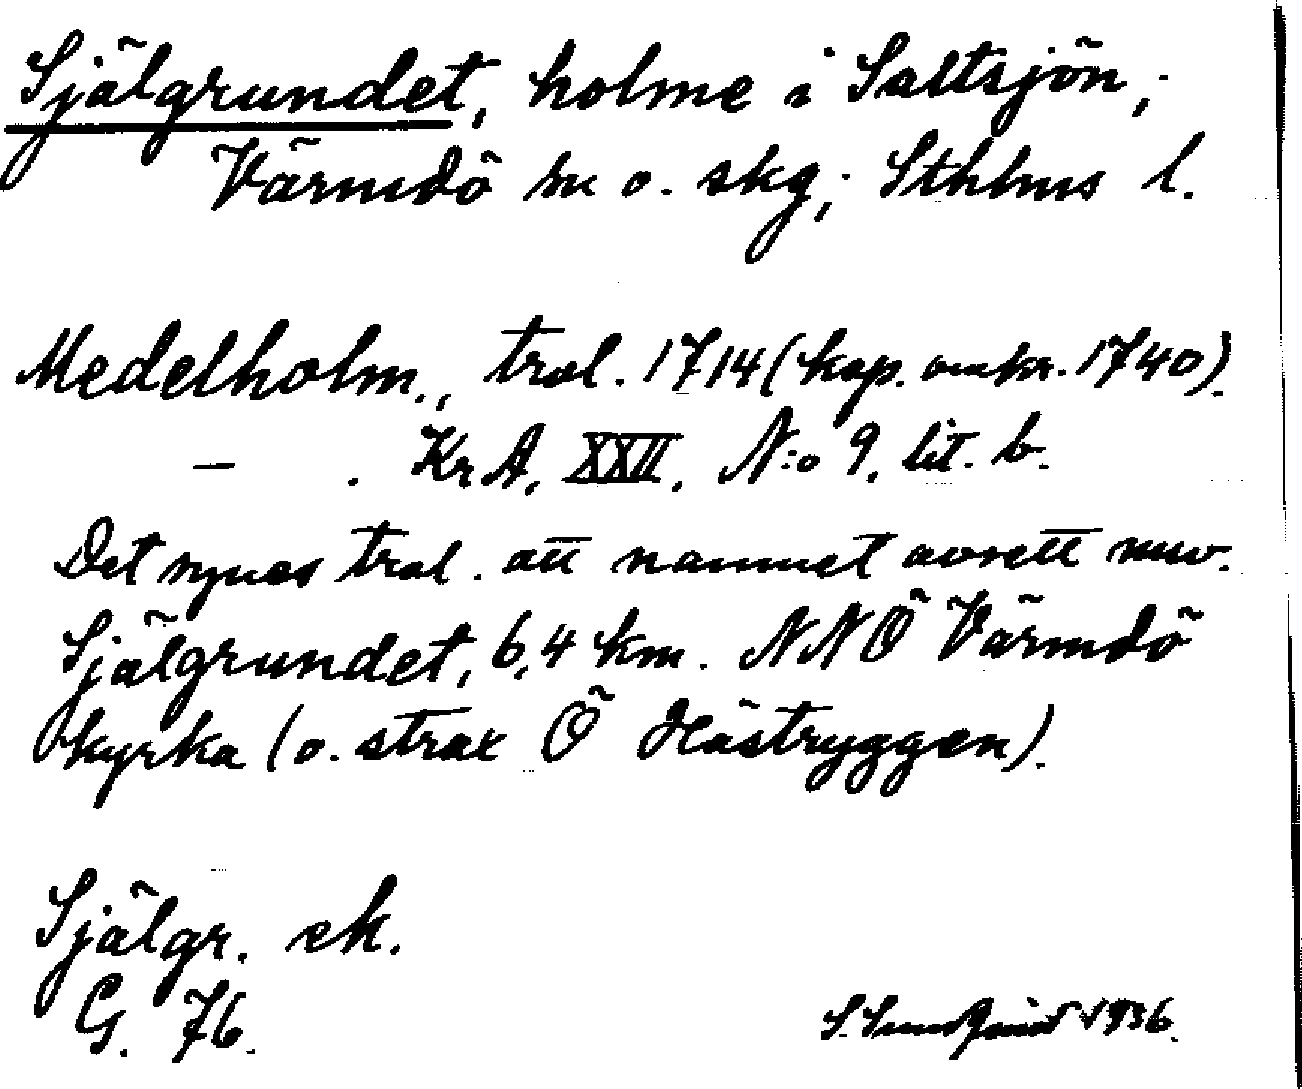 Själgrundet, holme i Saltsjön,;
Värmdö sn o. skg,; Sthlms l.
Medelholm., trol. 1714 (kop. omkr. 1740).
— . KrA, XXII. N:o 9. lit. b.
Det synes trol. att namnet avsett nuv.
Själgrundet, 6,4 km. NNÖ Värmdö
kyrka (o. strax Ö Hästryggen).
Själgr. ek.
G. 76.
S. 1936.